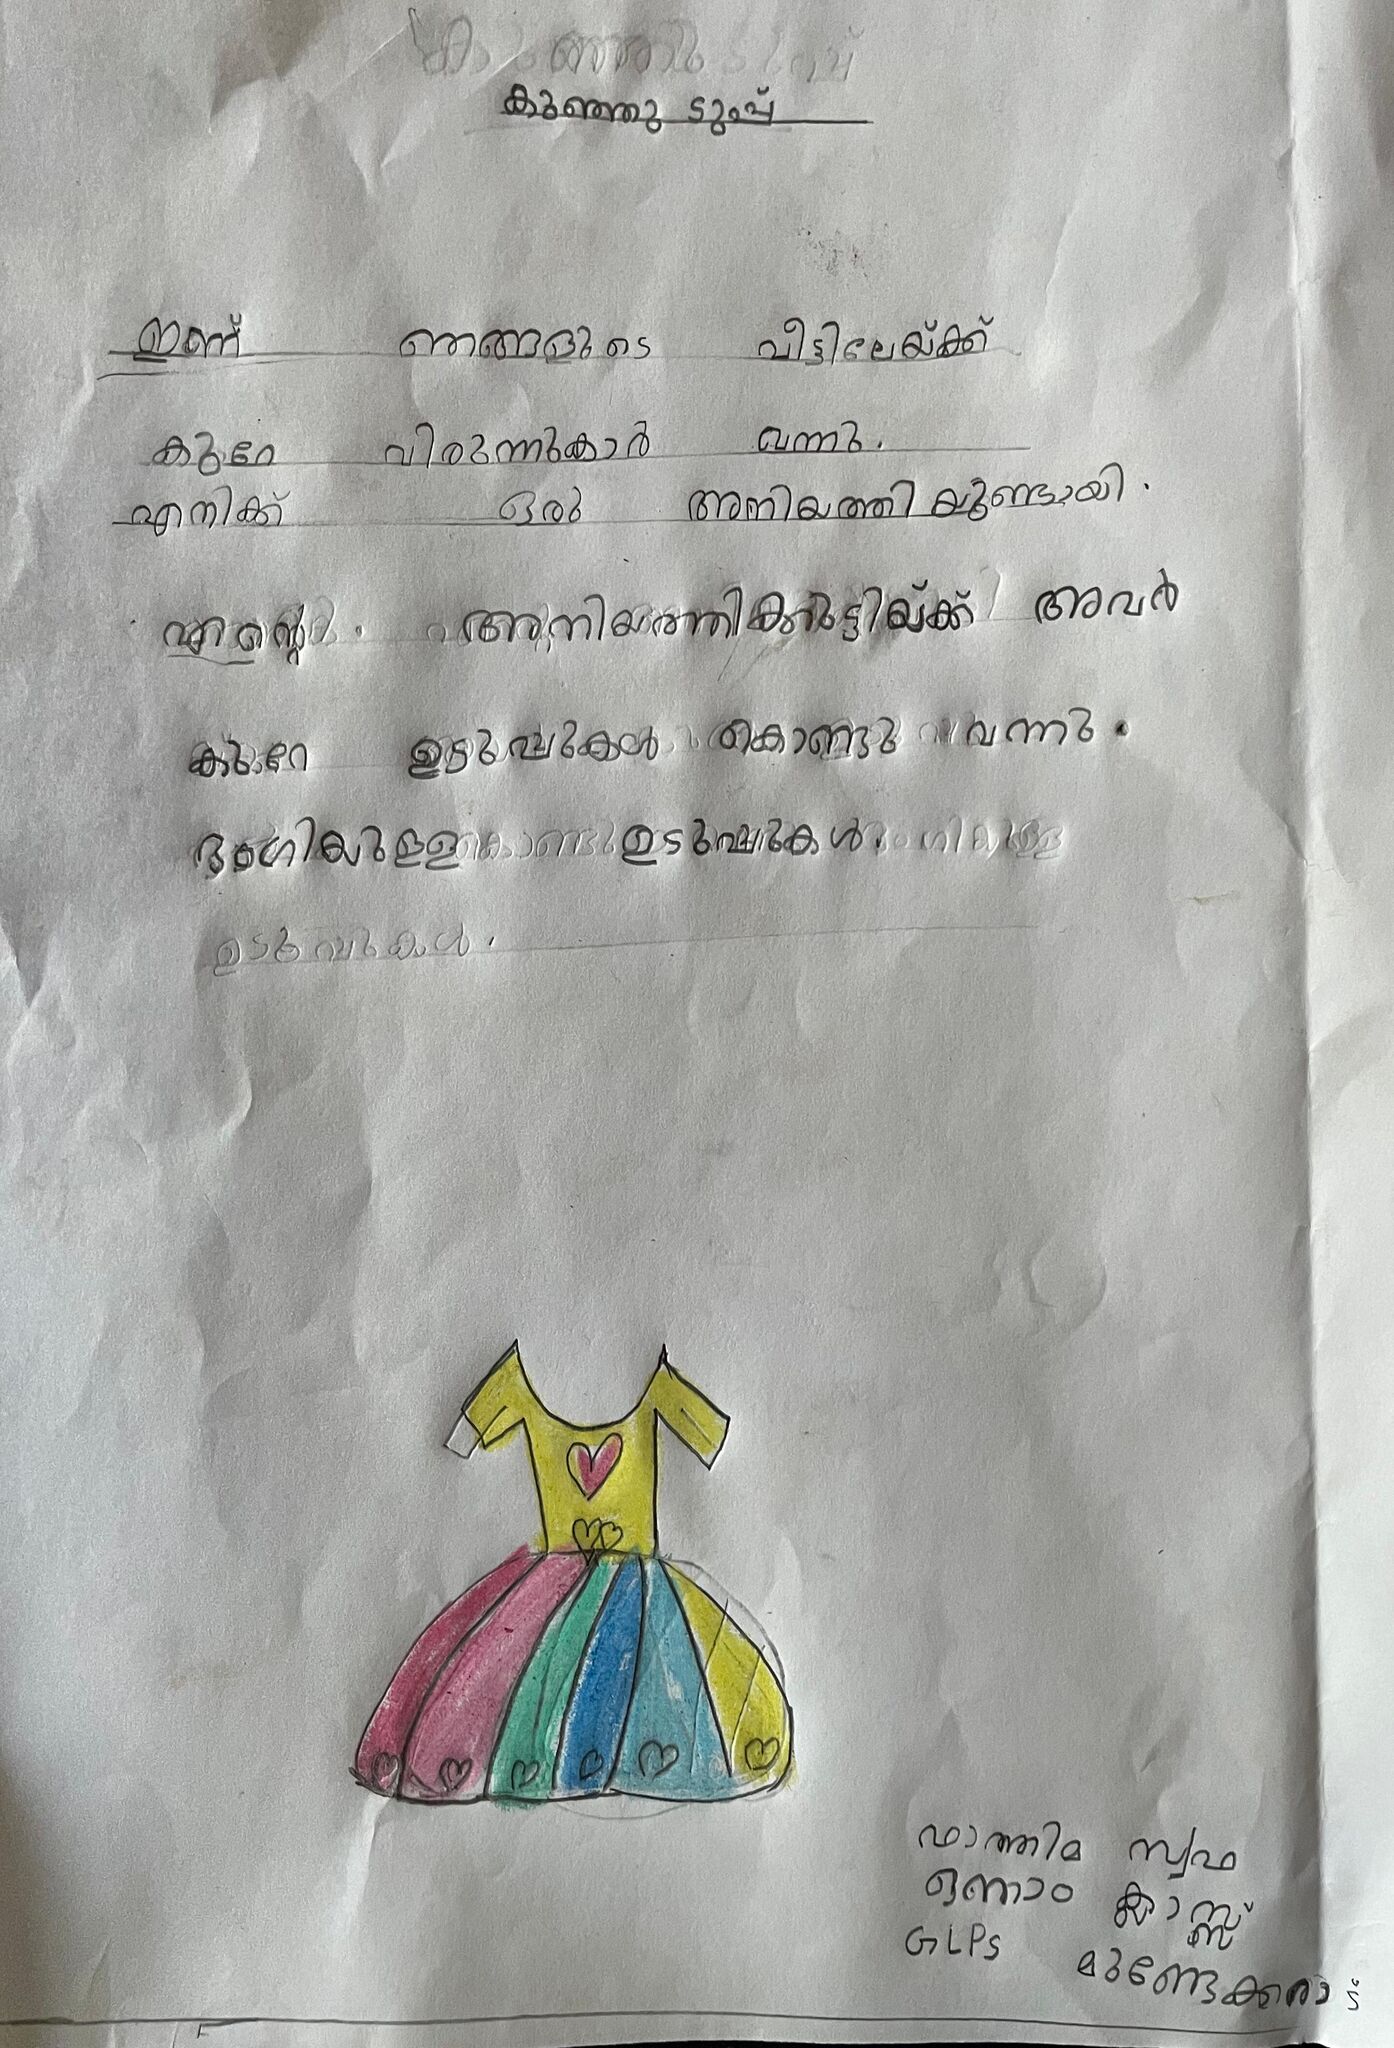 കുഞ്ഞു ടുപ്പ്
ഇന്ന് ഞങ്ങളുടെ വീട്ടിലേയ്ക്ക്
കുറേ വിരുന്നുകാർ വന്നു.
എനിക്ക് ഒരു അനിയത്തിയുണ്ടായി.
എന്റെ അനിയത്തികുട്ടിയ്ക്ക് അവർ
കുറേ ഉടുപ്പുകൾ കൊണ്ടു വന്നു.
ഭംഗിയുള്ള ഇടുപ്പുകൾ.
ഉടുപ്പുകൾ.
ഫാത്തിമ സ്വഫ
ഒന്നാം ക്ലാസ്സ്
GLPS മുണ്ടേക്കരാട്